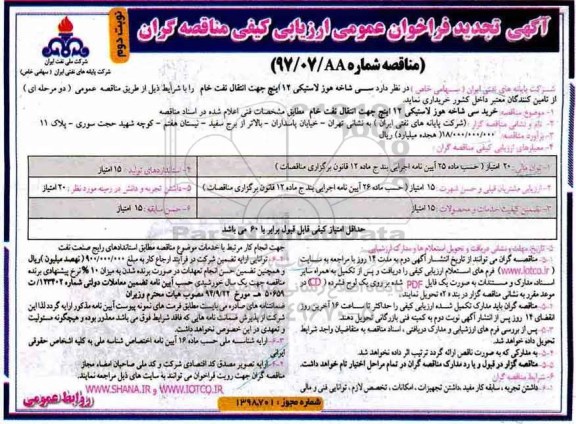 آگهی تجدید فراخوان عمومی ارزیابی کیفی مناقصه گران
نوبت دوم
(مناقصه شماره ۹۷/۰۷/AA)
شرکت ملی نفت ایران
شرکت پایانه های نفتی ایران (سهامی خاص)
شرکت پایانه های نفتی ایران (سهامی خاص) در نظر دارد سی شاخه هوز لاستیکی ۱۲ اینچ جهت انتقال نفت خام را با شرایط ذیل از طریق مناقصه عمومی (دو مرحله ای)
از تامین کنندگان معتبر داخل کشور خریداری نماید.
۱- موضوع مناقصه: خرید سی شاخه هوز لاستیکی ۱۲ اینچ جهت انتقال نفت خام مطابق مشخصات فنی اعلام شده در اسناد مناقصه
۲- نام و نشانی مناقصه گزار: (شرکت پایانه های نفتی ایران) به نشانی تهران - خیابان پاسداران - بالاتر از برج سفید - نبستان هفتم - کوچه شهید حجت سوری - پلاک ۱۱
۳- برآورد مناقصه: ۱۸/۰۰۰/۰۰۰/۰۰۰ (هجده میلیارد) ریال
۴- معیارهای ارزیابی کیفی مناقصه گران:
۱- توان مالی: ۲۰ امتیاز (حسب ماده ۲۵ آیین نامه اجرایی بند ج ماده ۱۲ قانون برگزاری مناقصات)
۴- استانداردهای تولید: ۱۵ امتیاز
۲- ارزیابی مشتریان قبلی و حسن شهرت: ۱۵ امتیاز (حسب ماده ۲۶ آیین نامه اجرایی بند ج ماده ۱۲ قانون برگزاری مناقصات)
۵- داشتن تجربه و دانش در زمینه مورد نظر: ۲۰ امتیاز
۳- تضمین کیفیت خدمات و محصولات: ۱۵ امتیاز
۶- حسن سابقه: ۱۵ امتیاز
حداقل امتیاز کیفی قابل قبول برابر با ۶۰ می باشد
۵- تاریخ، مهلت و نشانی دریافت و تحویل استعلام ها و مدارک ارزیابی:
مناقصه گران می توانند از تاریخ انتشار آگهی دوم به مدت ۱۴ روز با مراجعه به سایت
(www.iotco.ir) فرم های استعلام ارزیابی کیفی را دریافت و پس از تکمیل به همراه سایر
اسناد، مدارک و مستندات به صورت یک فایل PDF بر روی یک لوح فشرده (CD) در
موعد مقرر به نشانی مناقصه گزار در بند ۲ تحویل نمایند.
مناقصه گران باید مدارک تکمیل شده ارزیابی کیفی را حداکثر تا ساعت ۱۶ آخرین روز
انقضای ۱۴ روز پس از انتشار آگهی نوبت دوم به کمیته فنی بازرگانی تحویل دهند.
پس از بررسی فرم های ارزیابی و مدارک دریافتی، اسناد مناقصه به متقاضیان واجد شرایط
تحویل داده خواهد شد.
به مدارکی که به صورت ناقص ارائه گردد ترتیب اثر داده نخواهد شد.
مناقصه گزار در قبول و یا رد مدارک مناقصه گران در تمام مراحل اختیار تام خواهد داشت.
۶- شرایط مناقصه گران
۶-۱- داشتن تجربه، سابقه کار مفید، داشتن تجهیزات، امکانات، تخصص لازم، توانایی فنی و مالی
جهت انجام کار مرتبط با خدمات موضوع مناقصه مطابق استانداردهای رایج صنعت نفت
۶-۲- توانایی ارایه تضمین شرکت در فرآیند ارجاع کار به مبلغ ۹۰۰/۰۰۰/۰۰۰ (نهصد میلیون) ریال
و همچنین تضمین حسن انجام تعهدات در صورت برنده شدن به میزان ۱۰% نرخ پیشنهادی برنده
مناقصه جهت یک سال خورشیدی حسب آیین نامه تضمین معاملات دولتی شماره ۱۲۳۴۰۲/ت
۵۰۶۵۹ هـ مورخ ۹۴/۹/۲۲ مصوب هیات محترم وزیران
۶-۳- ارایه شناسه ملی حسب ماده ۱۶ آیین نامه اختصاص شناسه ملی به کلیه اشخاص حقوقی
ایرانی
۶-۴- ارایه تصویر مصدق کد اقتصادی شرکت و کد ملی صاحبان امضاء مجاز
مناقصه گران جهت رویت فراخوان می توانند به سایت های ذیل مراجعه نمایند.
WWW.SHANA.IR و WWW.IOTCO.IR
شماره مجوز: ۱۳۹۸.۷۰۱
روابط عمومی